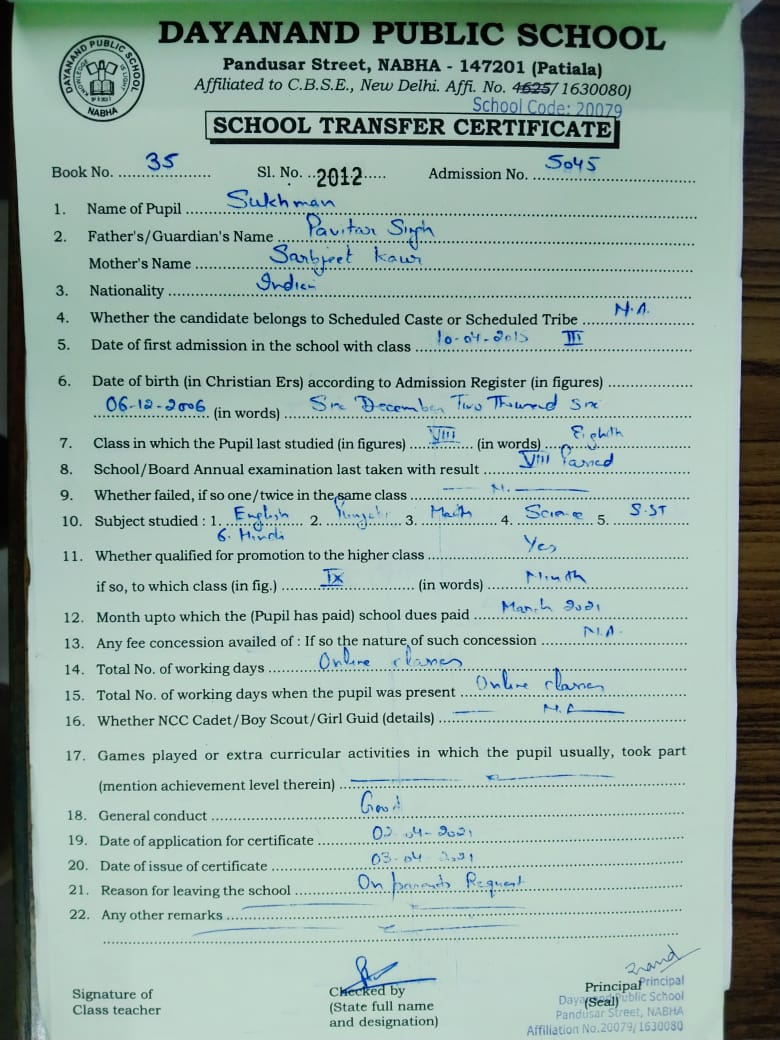 DAYANAND PUBLIC SCHOOL
Pandusar Street, NABHA - 147201 (Patiala)
Affiliated to C.B.S.E., New Delhi. Affi. No. 4625/1630080)
School Code: 20079
DAYANAND PUBLIC SCHOOL
KNOWLEDGE IS LIGHT
NABHA
SCHOOL TRANSFER CERTIFICATE
Book No. 35 Sl. No. 2012 Admission No. 5045
1. Name of Pupil Sukhman
2. Father's/Guardian's Name Pavitar Singh
Mother's Name Sarbjeet Kaur
3. Nationality Indian
4. Whether the candidate belongs to Scheduled Caste or Scheduled Tribe N.A.
5. Date of first admission in the school with class 10-04-2015 III
6. Date of birth (in Christian Ers) according to Admission Register (in figures)
06-12-2006 (in words) Six December Two Thousand Six
7. Class in which the Pupil last studied (in figures) VIII (in words) Eighth
8. School/Board Annual examination last taken with result VIII Passed
9. Whether failed, if so one/twice in the same class
10. Subject studied : 1. English 2. Punjabi 3. Math 4. Science 5. S.ST
6. Hindi
11. Whether qualified for promotion to the higher class Yes
if so, to which class (in fig.) IX (in words) Ninth
12. Month upto which the (Pupil has paid) school dues paid March 2021
13. Any fee concession availed of : If so the nature of such concession N.A.
14. Total No. of working days Online classes
15. Total No. of working days when the pupil was present Online classes
16. Whether NCC Cadet/Boy Scout/Girl Guid (details) N.A
17. Games played or extra curricular activities in which the pupil usually, took part
(mention achievement level therein)
18. General conduct Good
19. Date of application for certificate 02-04-2021
20. Date of issue of certificate 03-04-2021
21. Reason for leaving the school On parents Request
22. Any other remarks
Signature of
Class teacher
Checked by
(State full name
and designation)
Principal
(Seal)
Principal
Dayanand Public School
Pandusar Street, NABHA
Affiliation No.20079/1630080